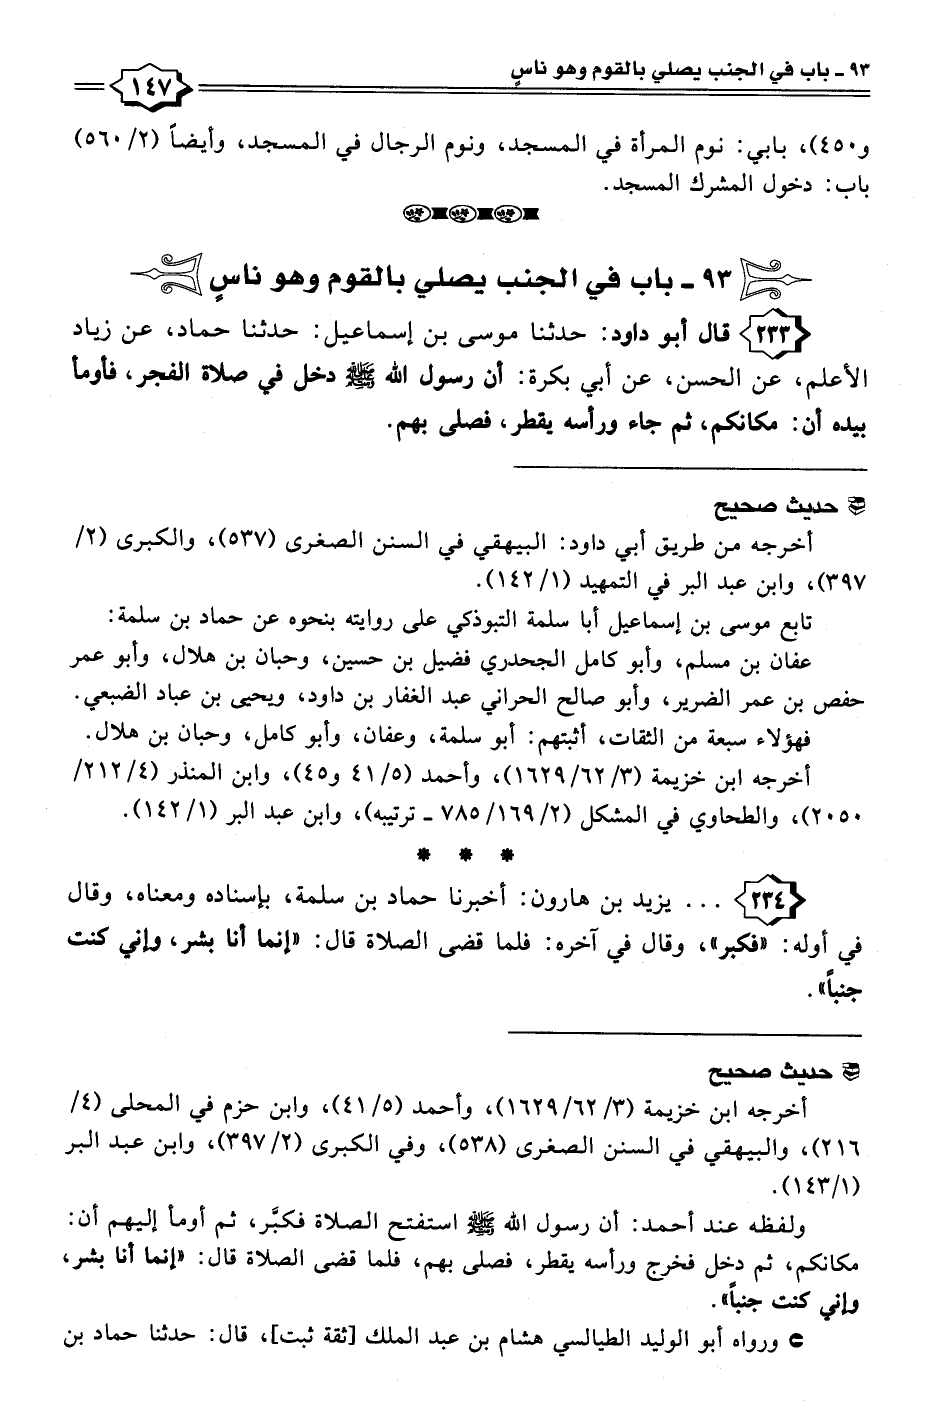 ٩٣ - باب في الجنب يصلي بالقوم وهو ناسٍ
١٤٧
و٤٥٠)، بابي: نوم المرأة في المسجد، ونوم الرجال في المسجد، وأيضاً (٢/ ٥٦٠)
باب: دخول المشرك المسجد.
٩٣ - باب في الجنب يصلي بالقوم وهو ناسٍ
٢٣٣ قال أبو داود: حدثنا موسى بن إسماعيل: حدثنا حماد، عن زياد
الأعلم، عن الحسن، عن أبي بكرة: أن رسول الله ﷺ دخل في صلاة الفجر، فأومأ
بيده أن: مكانكم، ثم جاء ورأسه يقطر، فصلى بهم.
حديث صحيح
أخرجه من طريق أبي داود: البيهقي في السنن الصغرى (٥٣٧)، والكبرى (٢/
٣٩٧)، وابن عبد البر في التمهيد (١/ ١٤٢).
تابع موسى بن إسماعيل أبا سلمة التبوذكي على روايته بنحوه عن حماد بن سلمة:
عفان بن مسلم، وأبو كامل الجحدري فضيل بن حسين، وحبان بن هلال، وأبو عمر
حفص بن عمر الضرير، وأبو صالح الحراني عبد الغفار بن داود، ويحيى بن عباد الضبعي.
فهؤلاء سبعة من الثقات، أثبتهم: أبو سلمة، وعفان، وأبو كامل، وحبان بن هلال.
أخرجه ابن خزيمة (٣/ ٦٢/ ١٦٢٩)، وأحمد (٥/ ٤١ و٤٥)، وابن المنذر (٤/ ٢١٢/
٢٠٥٠)، والطحاوي في المشكل (٢/ ١٦٩/ ٧٨٥ - ترتيبه)، وابن عبد البر (١/ ١٤٢).
* * *
٢٣٤ ... يزيد بن هارون: أخبرنا حماد بن سلمة، بإسناده ومعناه، وقال
في أوله: «فكبر»، وقال في آخره: فلما قضى الصلاة قال: «إنما أنا بشر، وإني كنت
جنباً».
حديث صحيح
أخرجه ابن خزيمة (٣/ ٦٢/ ١٦٢٩)، وأحمد (٥/ ٤١)، وابن حزم في المحلى (٤/
٢١٦)، والبيهقي في السنن الصغرى (٥٣٨)، وفي الكبرى (٢/ ٣٩٧)، وابن عبد البر
(١/ ١٤٣).
ولفظه عند أحمد: أن رسول الله ﷺ استفتح الصلاة فكبَّر، ثم أومأ إليهم أن:
مكانكم، ثم دخل فخرج ورأسه يقطر، فصلى بهم، فلما قضى الصلاة قال: «إنما أنا بشر،
وإني كنت جنباً».
ورواه أبو الوليد الطيالسي هشام بن عبد الملك [ثقة ثبت]، قال: حدثنا حماد بن